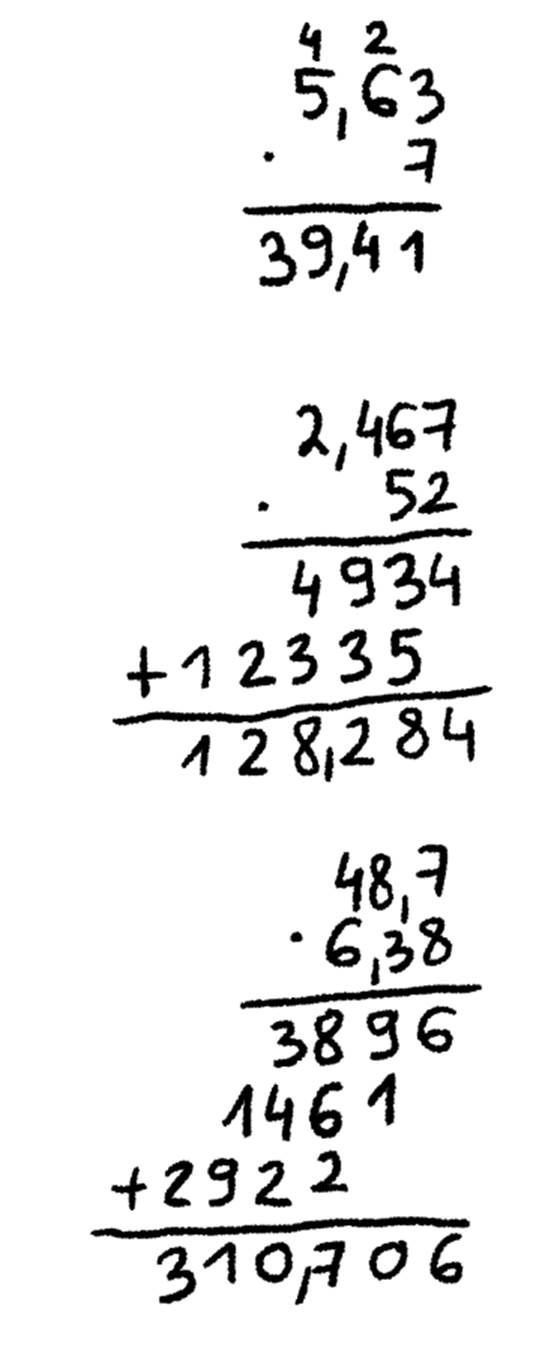 4 2
5,63
· 7
39,41
2,467
· 52
4934
+12335
128,284
48,7
· 6,38
3896
1461
+2922
310,706